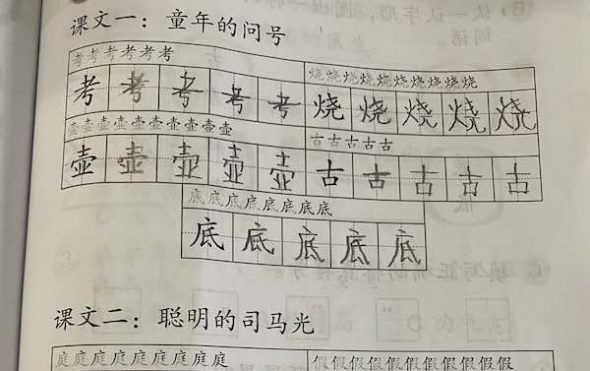 课文一：童年的问号
考考考考考考
烧烧烧烧烧烧烧烧烧烧
考考考考考
烧烧烧烧烧
壶壶壶壶壶壶壶壶壶壶
古古古古古
壶壶壶壶壶
古古古古古
底底底底底底底底
底底底底底
课文二：聪明的司马光
庭庭庭庭庭庭庭庭庭
假假假假假假假假假假假